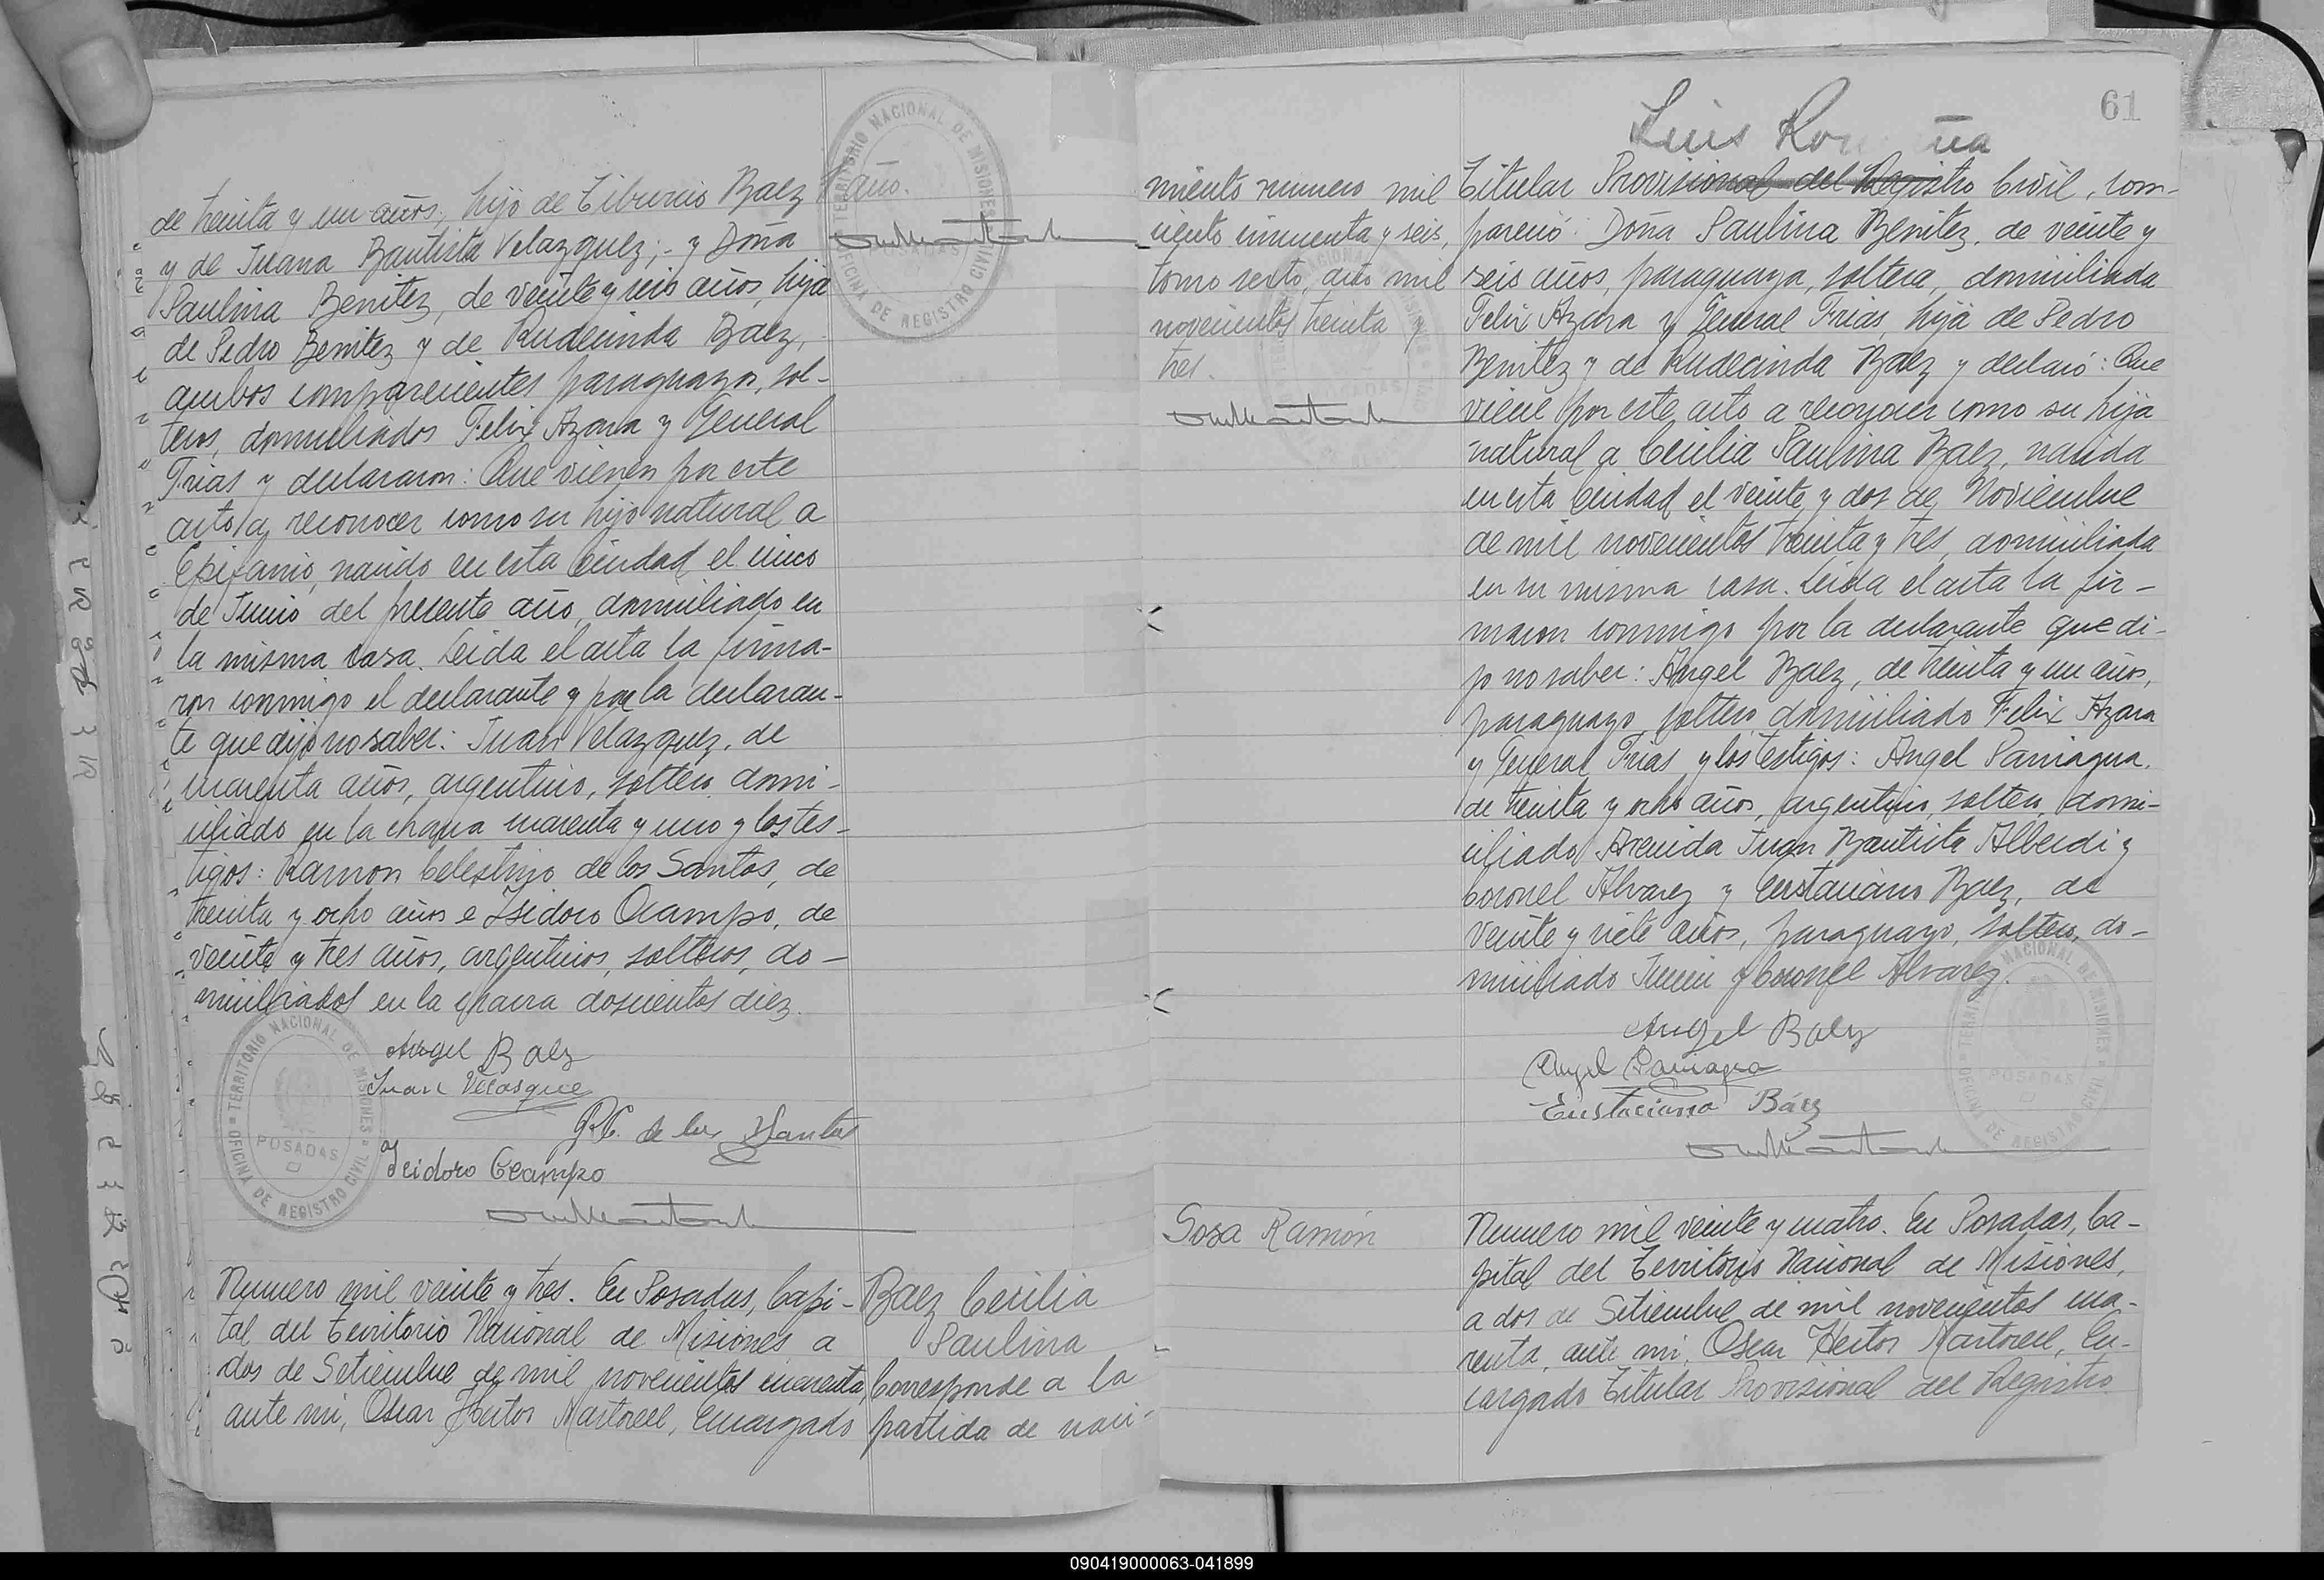 de treinta y un años, hijo de Tiburcio Baez
y de Juana Bautista Velazquez; - y Doña
Paulina Benitez, de veinte y seis años, hija
de Pedro Benitez y de Rudecinda Baez,
ambos comparecientes paraguayos, sol-
teros, domiciliados Felix Azara y General
Frias y declararon: Que vienen por este
acto a reconocer como su hijo natural a
Epifanio, nacido en esta Ciudad el cinco
de Junio del presente año, domiciliado en
la misma casa. Leida el acta la firma-
ron conmigo el declarante y por la declaran-
te que dijo no saber: Juan Velazquez, de
cuarenta años, argentino, soltero, domi-
ciliado en la chacra cuarenta y uno y los tes-
tigos: Ramon Celestino de los Santos, de
treinta y ocho años e Isidoro Ocampo, de
veinte y tres años, argentinos, solteros, do-
miciliados en la chacra doscientos diez.
Angel Baez
Juan Velasque
R.C. de los Santos
Isidoro Ocampo
año.
TERRITORIO NACIONAL DE MISIONES
OFICINA DE REGISTRO CIVIL
POSADAS
TERRITORIO NACIONAL DE MISIONES
OFICINA DE REGISTRO CIVIL
POSADAS
Numero mil veinte y tres. En Posadas, Capi-
tal del Territorio Nacional de Misiones a
dos de Setiembre de mil novecientos cuarenta,
ante mi, Oscar Hector Martorell, Encargado
Baez Cecilia
Paulina
Corresponde a la
partida de naci-
61
Luis
miento numero mil
ciento cincuenta y seis,
tomo sexto, año mil
novecientos treinta y
tres.
Titular Provisional del Registro Civil, com-
pareció: Doña Paulina Benitez, de veinte y
seis años, paraguaya, soltera, domiciliada
Felix Azara y General Frias hija de Pedro
Benitez y de Rudecinda Baez y declaró: Que
viene por este acto a reconocer como su hija
natural a Cecilia Paulina Baez, nacida
en esta Ciudad el veinte y dos de Noviembre
de mil novecientos treinta y tres, domiciliada
en su misma casa. Leida el acta la fir-
maron conmigo por la declarante que di-
jo no saber: Angel Baez, de treinta y un años,
paraguayo, soltero, domiciliado Felix Azara
y General Frias y los testigos: Angel Paniagua,
de treinta y ocho años, argentino, soltero, domi-
ciliado Avenida Juan Bautista Alberdi y
Coronel Alvarez y Eustaciano Baez, de
veinte y siete años, paraguayo, soltero, do-
miciliado Junin y Coronel Alvarez.
Angel Baez
Angel Paniagua
Eustaciano Báez
TERRITORIO NACIONAL DE MISIONES
OFICINA DE REGISTRO CIVIL
POSADAS
Sosa Ramón
Numero mil veinte y cuatro. En Posadas, Ca-
pital del Territorio Nacional de Misiones,
a dos de Setiembre de mil novecientos cua-
renta, ante mi, Oscar Hector Martorell, En-
cargado Titular Provisional del Registro
090419000063-041899